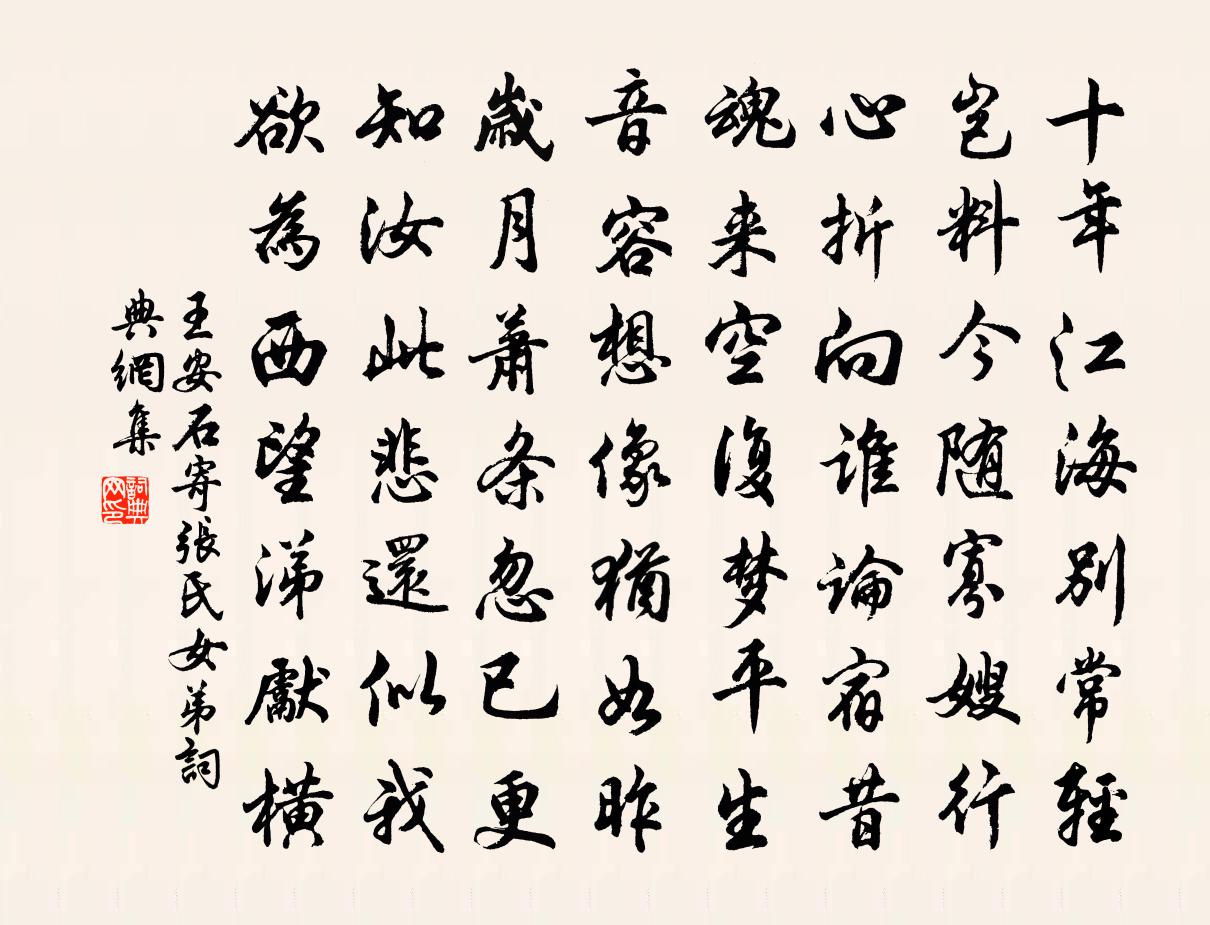 十年江海别常輕
豈料今随寡嫂行
心折向誰論宿昔
魂来空復梦平生
音容想像猶如昨
歲月蕭条忽已更
知汝此悲還似我
欲為西望涕獻橫
王安石寄張氏女弟詞
典網集
詞典
网印